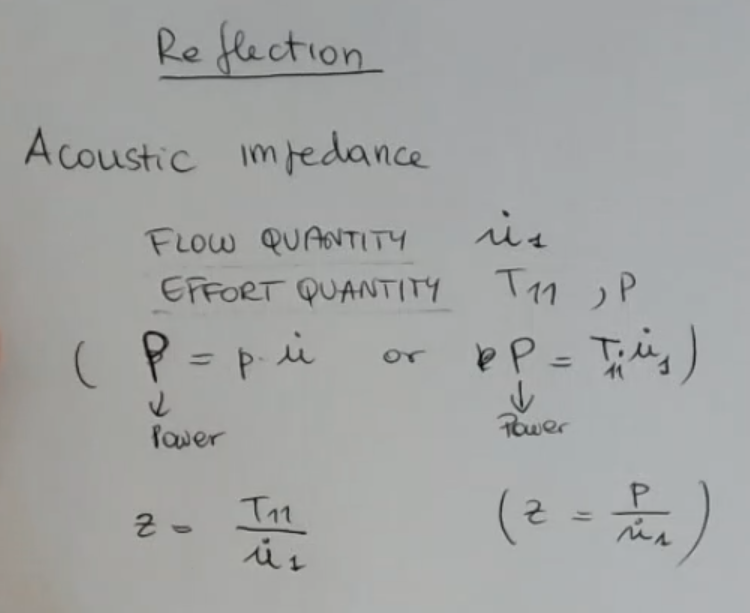 Reflection
Acoustic impedance
FLOW QUANTITY u̇₁
EFFORT QUANTITY T₁₁ , P
( P = p · u̇ or P = T₁₁ · u̇₁ )
↓ ↓
Power Power
z = T₁₁ / u̇₁ ( z = P / u̇₁ )